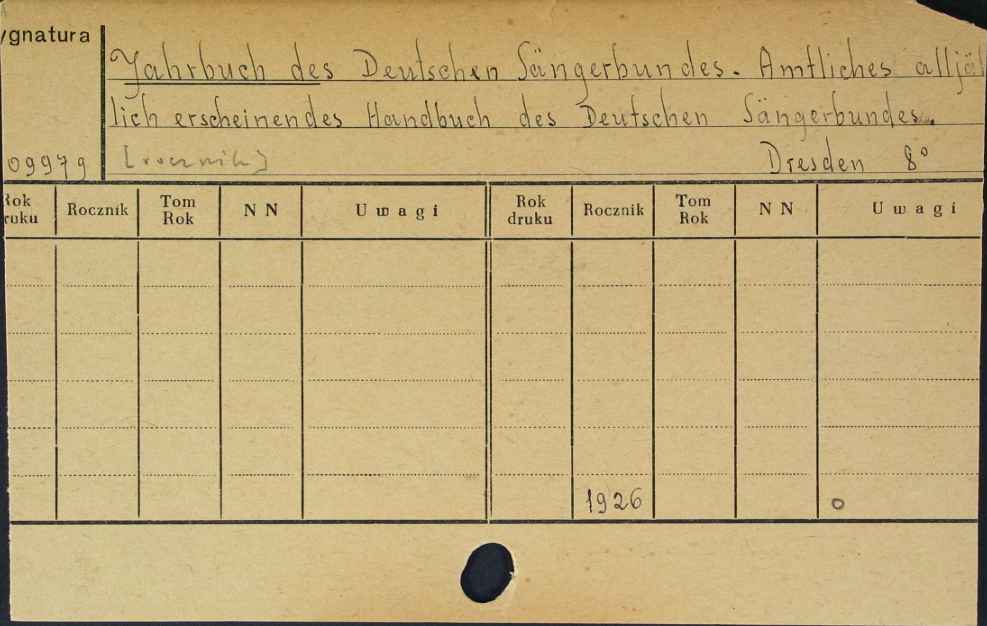 ygnatura
Jahrbuch des Deutschen Sängerbundes. Amtliches alljäh
lich erscheinendes Handbuch des Deutschen Sängerbundes.
09979 [rocznik] Dresden 8°
Rok druku Rocznik Tom Rok N N Uwagi Rok druku Rocznik Tom Rok N N Uwagi
1926 o